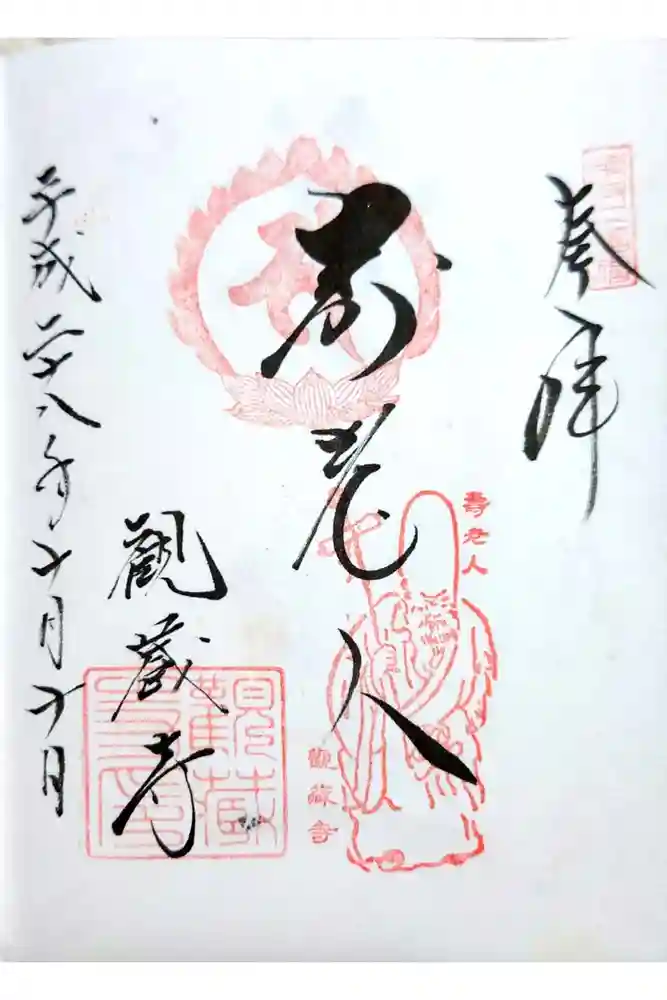 奉拝
寿老人
壽老人
觀蔵寺
觀蔵寺
觀藏寺印
平成二十八年十月十日